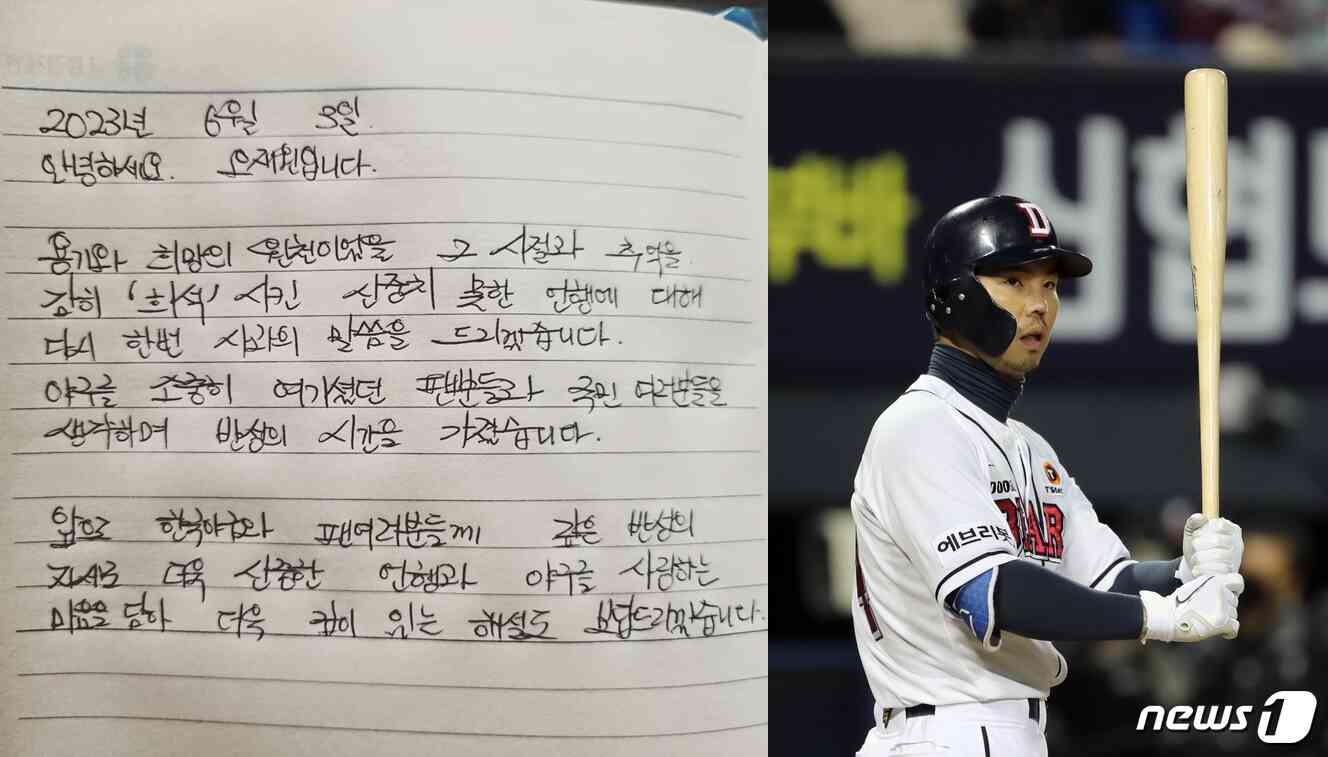 2023년 6월 3일.
안녕하세요. 오재원입니다.
용기와 희망의 원천이었을 그 시절과 추억을
감히 '희석' 시킨 신중치 못한 언행에 대해
다시 한번 사과의 말씀을 드리겠습니다.
야구를 소중히 여기셨던 팬분들과 국민 여러분들을
생각하며 반성의 시간을 가졌습니다.
앞으로 한국야구와 팬여러분들께 깊은 반성의
자세로 더욱 신중한 언행과 야구를 사랑하는
마음을 담아 더욱 깊이 있는 해설로 보답드리겠습니다.
신협
D
TSMC
에브리봇
BEAR
news1